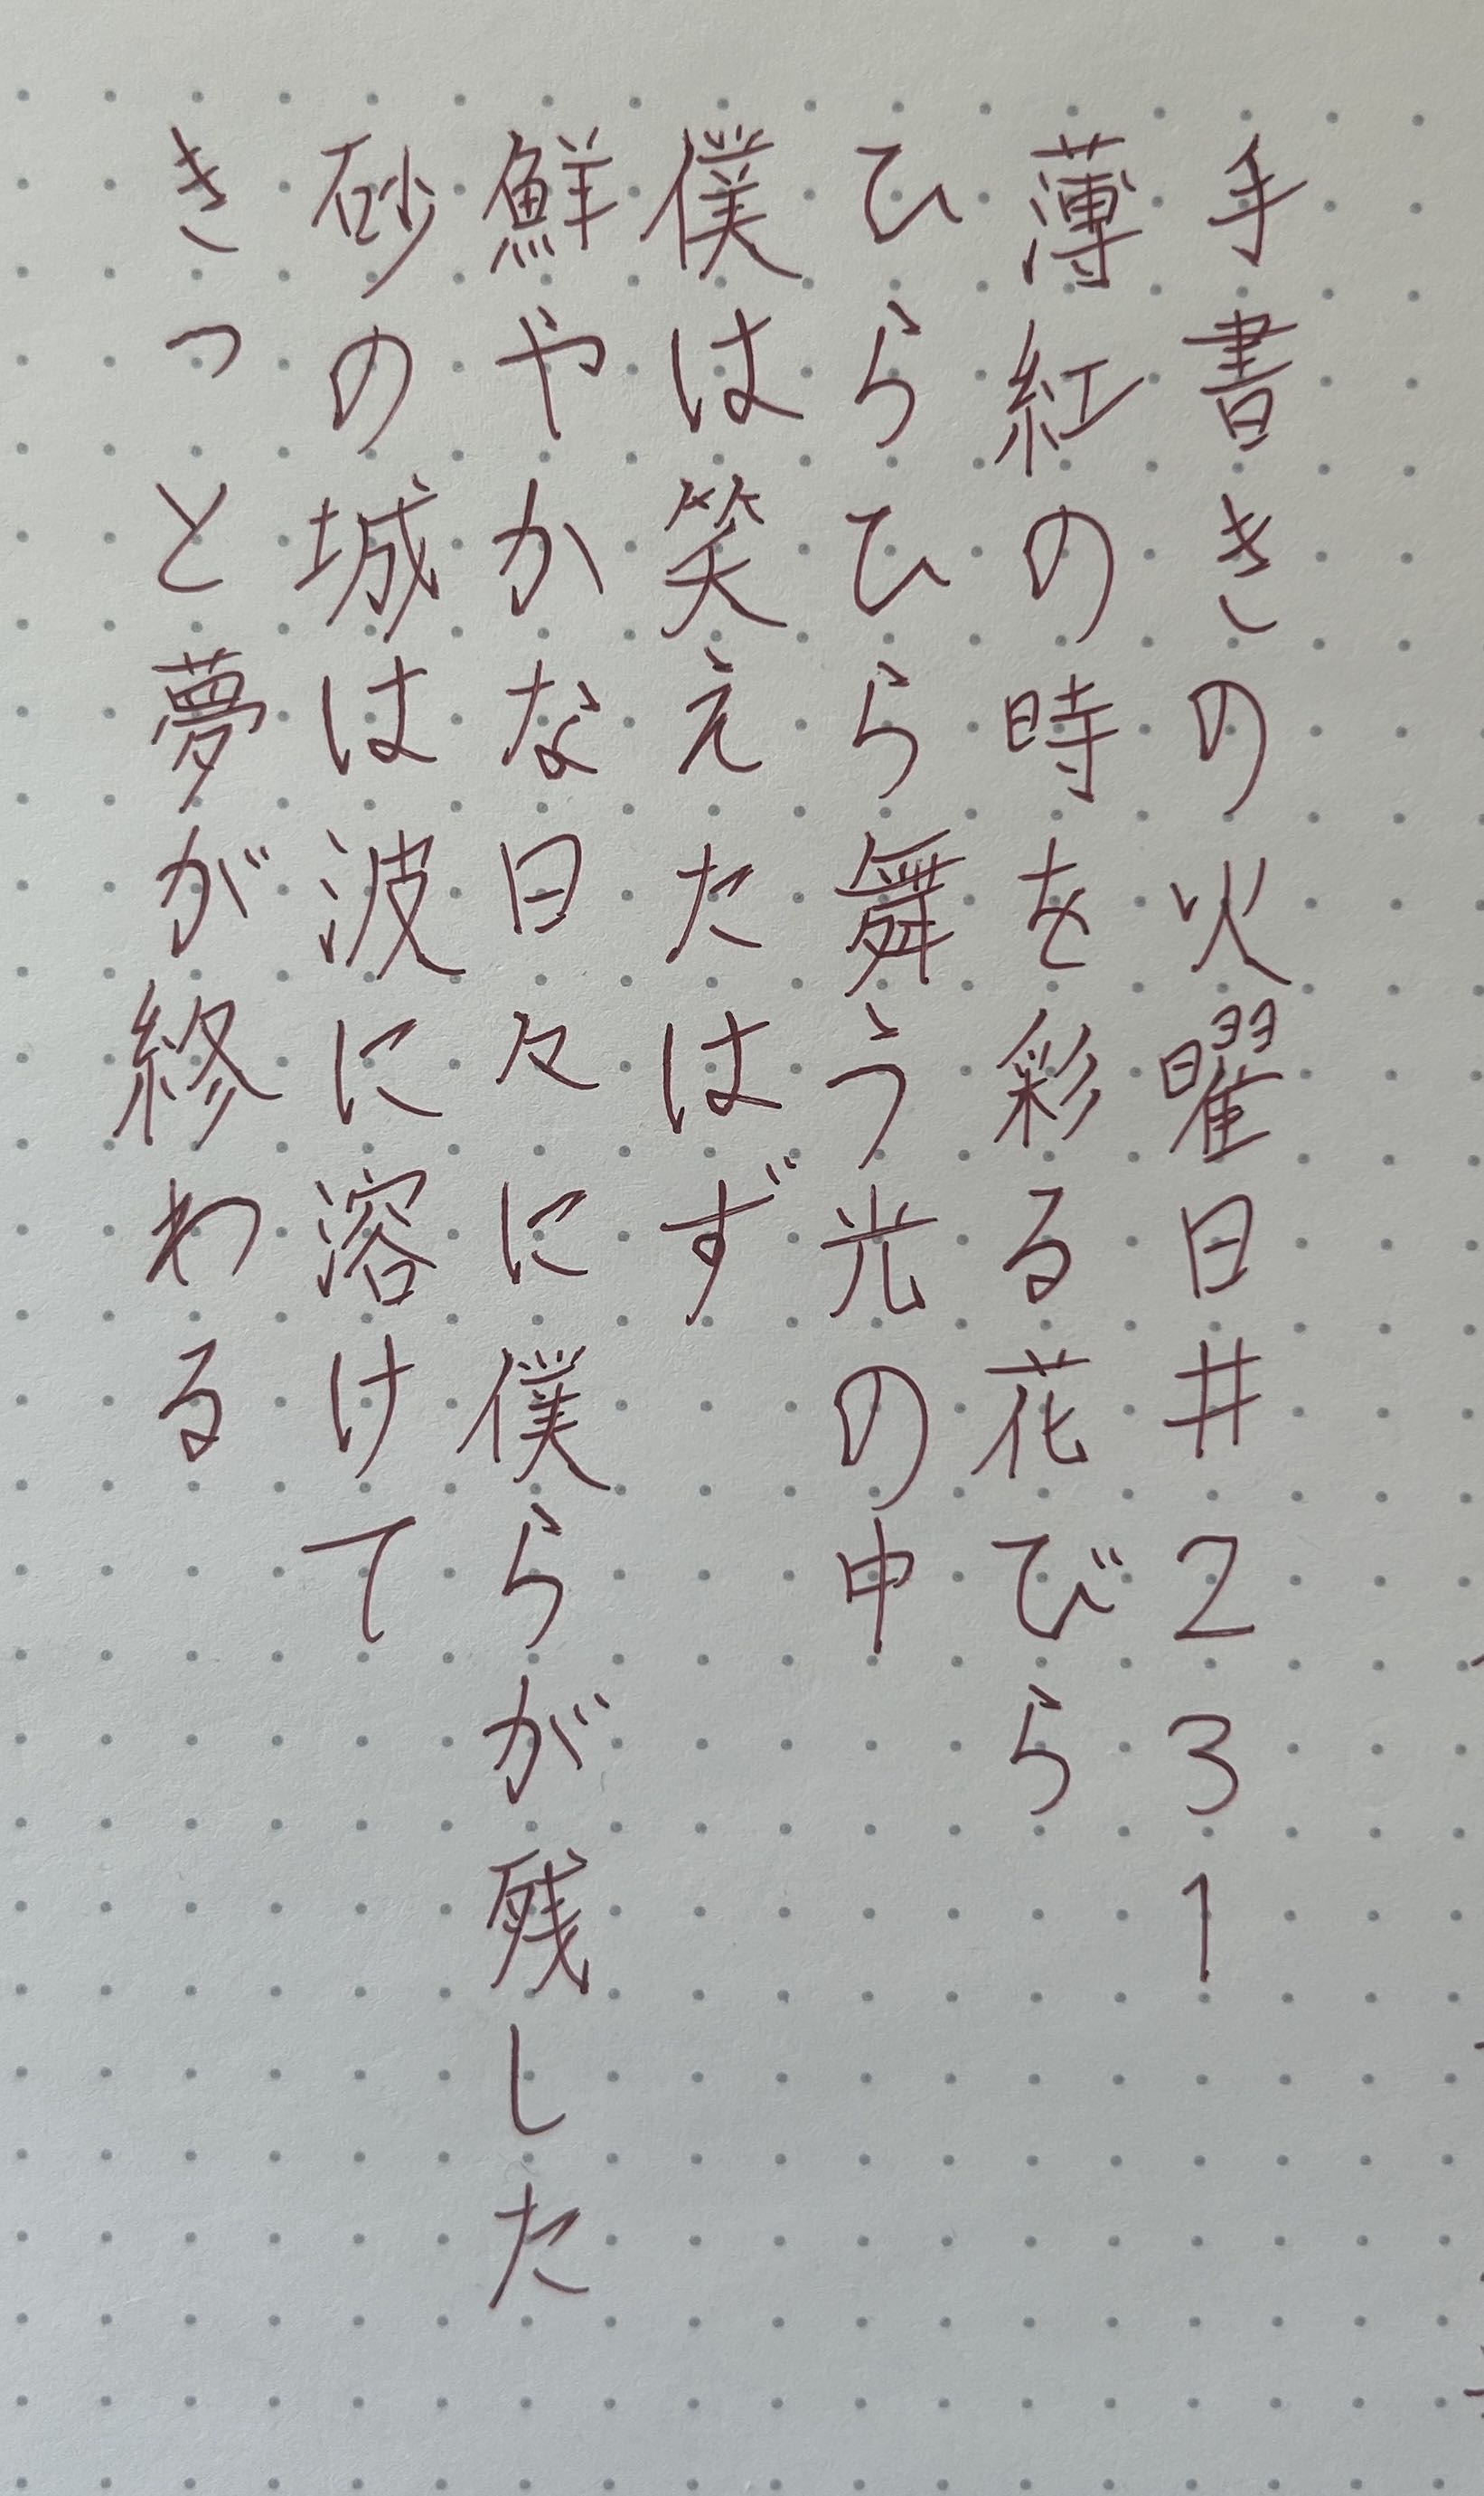 手書きの火曜日#231
薄紅の時を彩る花びら
ひらひら舞う光の中
僕は笑えたはず
鮮やかな日々に僕らが残した
砂の城は波に溶けて
きっと夢が終わる